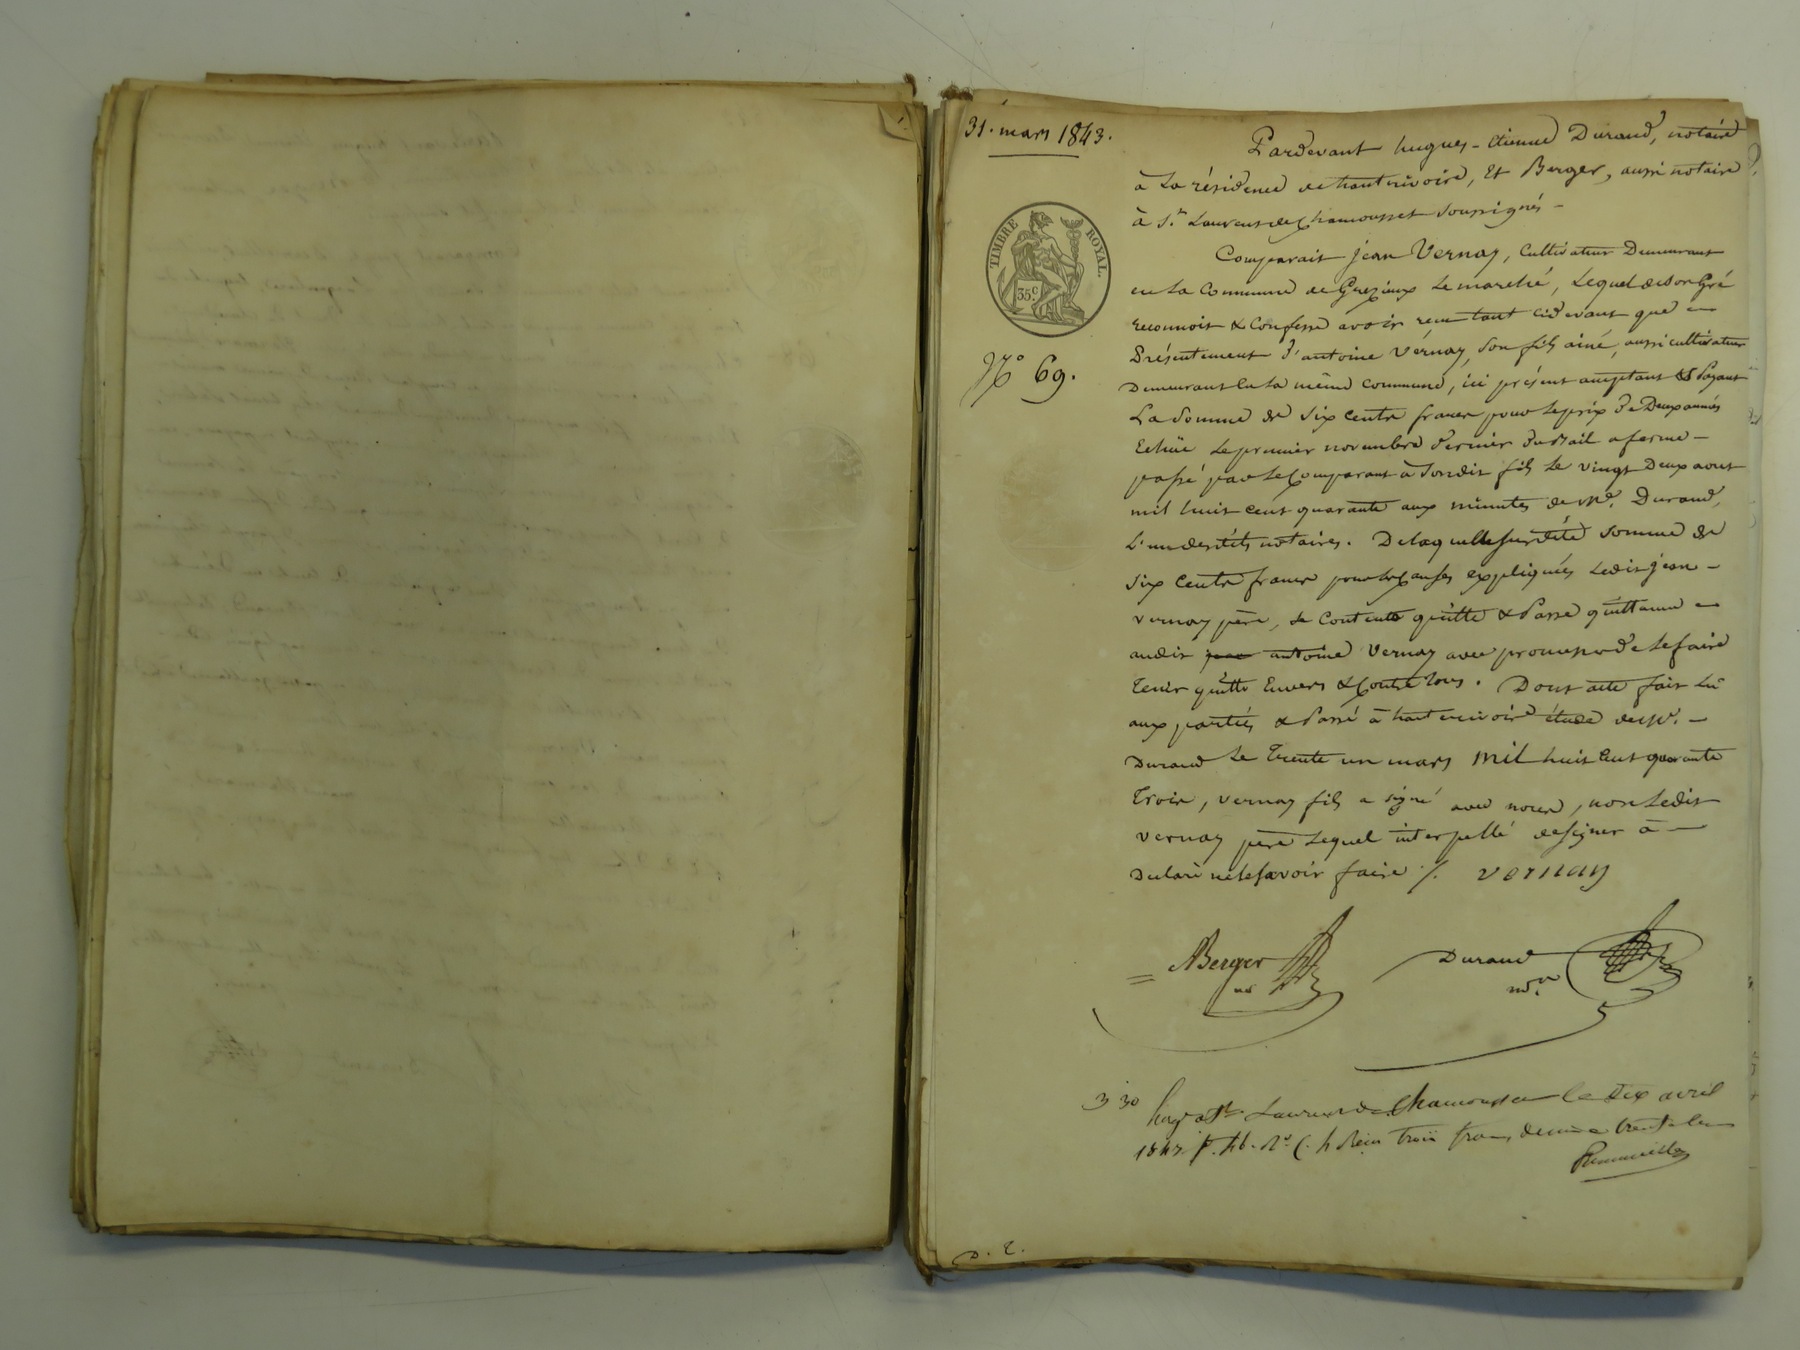 31. mars 1843.
Pardevant hugues-etienne Durand, notaire
à la résidence de hauterivoire, Et Berger, aussi notaire
à St. Laurent de Chamousset soussignés -
TIMBRE ROYAL.
35c.
Comparait jean Vernay, Cultivateur Demeurant
en la Commune de Grezieux le marché, Lequel de son Gré
reconnoit & Confesse avoir recu tant cidevant que
Présentement d'antoine Vernay, son fils ainé, aussi cultivateur
N° 69.
Demeurant en la même commune, ici présent acceptant & Payant
La Somme de Six Cents francs pour le prix de Deux années
Echüe le premier novembre dernier du Bail a ferme -
passé par le Comparant à Sondit fils le vingt Deux aout
mil huit cent quarante aux minutes de Me. Durand,
L'un desdits notaires. De laquelle susdite somme de
Six Cents francs pour les Causes expliquées Ledit jean -
vernay père, se Contente quitte & Passe quittance
audit antoine Vernay avec promesse de le faire
Tenir quitte Envers & Contre tous. Dont acte fait Lû
aux parties & Passé à hauterivoire étude de Me. -
Durand le Trente un mars mil huit Cent quarante
Trois, vernay fils a signé avec nous, non Ledit
vernay père Lequel interpellé de signer à -
Déclaré ne le savoir faire ./. vernay
Berger
Durand
no.re
3 30
St Laurent de Chamousset le six avril
1843 f. 46. Ro. C. 4 Reçu trois francs, décime trente
D. E.